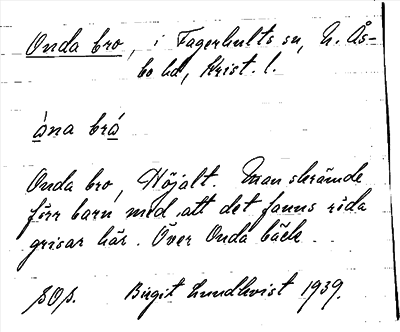 Onda bro, i Fagerhults sn, N. Ås-
bo hd, Krist. l.
ȧna brȧ
Onda bro, Höjalt. Man skrämde
förr barn med att det fanns röda
grisar här. Över Onda bäck.
SOS. Birgit Lundkvist 1939.